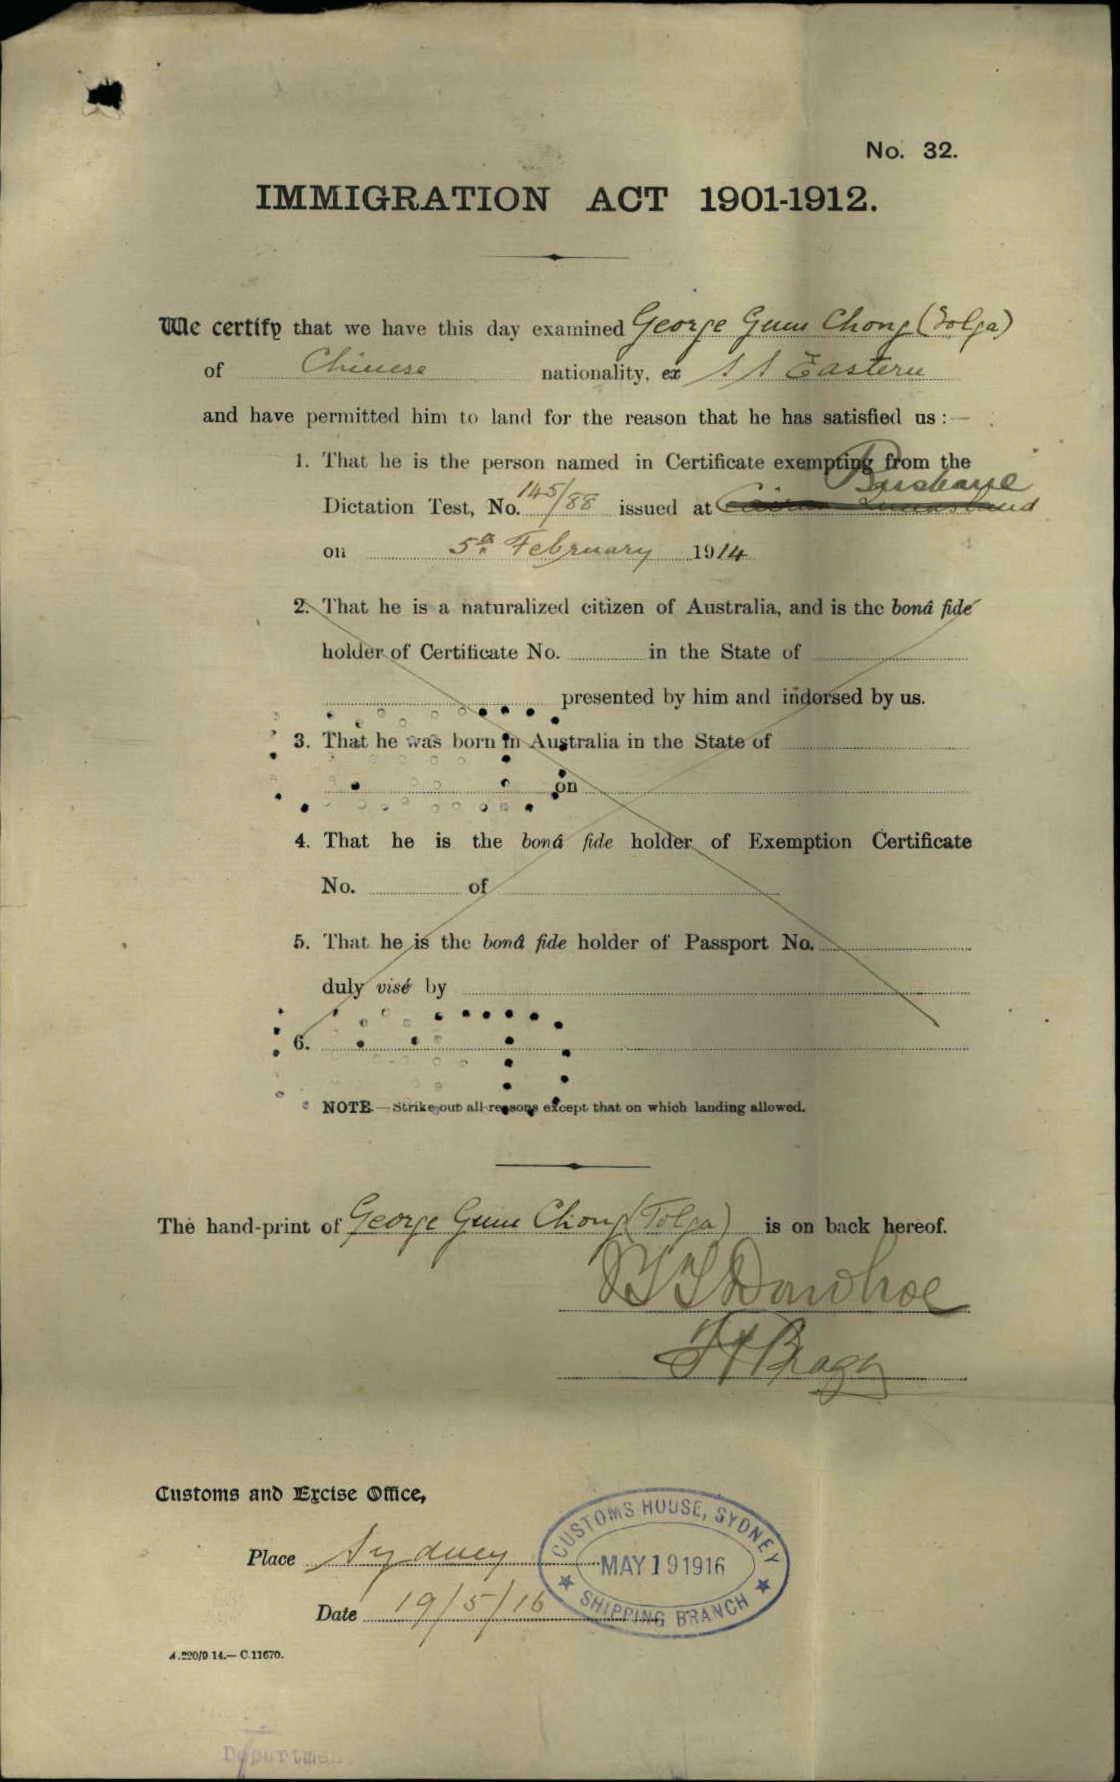 No. 32.
IMMIGRATION ACT 1901-1912.
We certify that we have this day examined George Gum Chong (Tolga)
of Chinese nationality, ex S S Eastern
and have permitted him to land for the reason that he has satisfied us :—
1. That he is the person named in Certificate exempting from the
Brisbane
Dictation Test, No. 145/88 issued at Cairns Queensland
on 5th February 1914
2. That he is a naturalized citizen of Australia, and is the bonâ fide
holder of Certificate No. in the State of
presented by him and indorsed by us.
3. That he was born in Australia in the State of
on
4. That he is the bonâ fide holder of Exemption Certificate
No. of
5. That he is the bonâ fide holder of Passport No.
duly visé by
6.
NOTE.—Strike out all reasons except that on which landing allowed.
The hand-print of George Gum Chong (Tolga) is on back hereof.
Donohoe
Bragg
Customs and Excise Office,
Place Sydney
Date 19/5/16
CUSTOMS HOUSE, SYDNEY
MAY 19 1916
SHIPPING BRANCH
A.220/9.14.—C.11670.